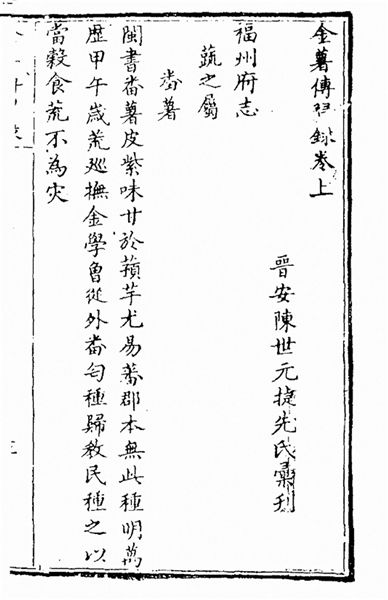 金薯傳習錄卷上
晉安陳世元捷先氏彙刊
福州府志
蔬之屬
番薯
閩書番薯皮紫味甘於蘋芋尤易蕃郡本無此種明萬
歴甲午歲荒巡撫金學曾從外番匄種歸教民種之以
當穀食荒不為灾